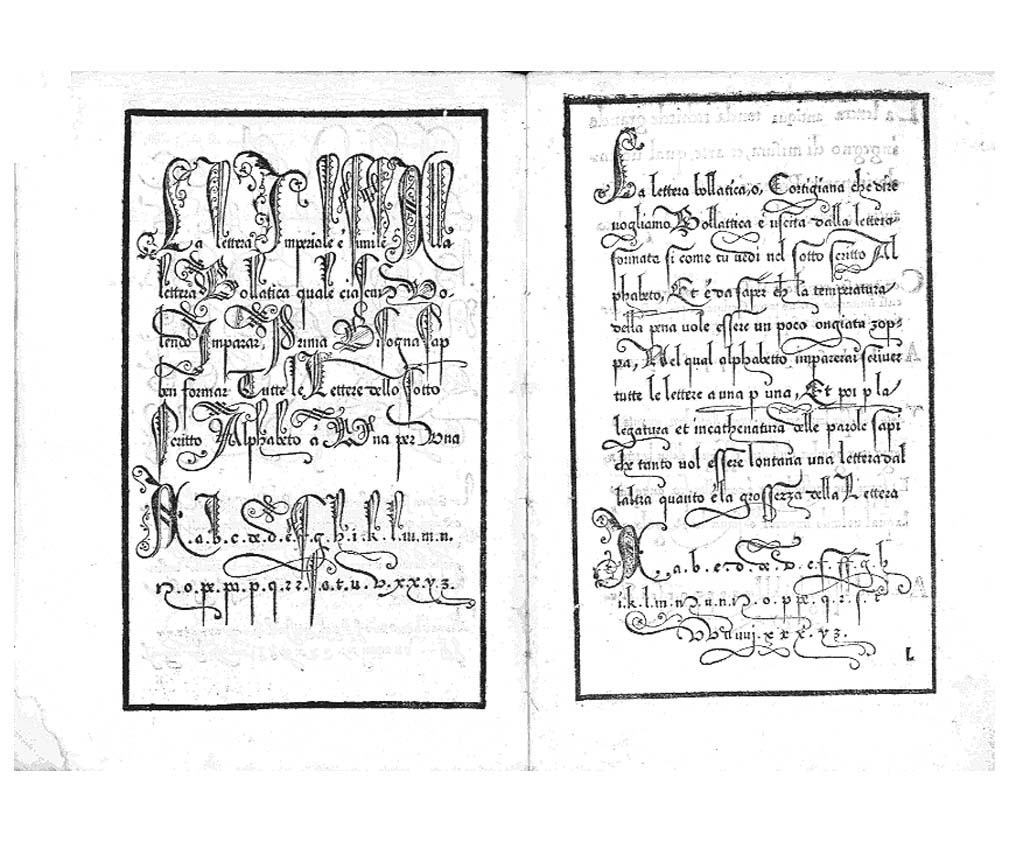 La lettera Imperiale é simile Alla
lettera Bollatica quale ciascun Vo-
lendo Imparar, Prima Bisogna Sap
ben formar Tutte le Lettere dello sotto
Scritto Alphabeto à Una per Una
A. a. b. c. d. d. e. f. g. h. i. k. l. m. m. n.
n. o. p. p. q. r. r. s. t. u. v. x. x. y. z.
La lettera bollatica, o, Cortigiana che dire
uogliamo Bollattica é uscita dalla lettera
formata si come tu uedi nel sotto scritto Al
phabeto, Et é da saper ch la temperatura
della pena uole essere un poco ongiata zop-
pa, Nel qual alphabetto impararai scriuer
tutte le lettere a una p una, Et poi p la
legatura et incathenatura delle parole sapi
che tanto uol essere lontana una lettera dal
laltra quanto é la grossezza della Lettera
A. a. b. c. d. d. e. f. ff. g. h
i. k. l. m. n. o. p. q. r. s. t
v v u x x x. y z.
L